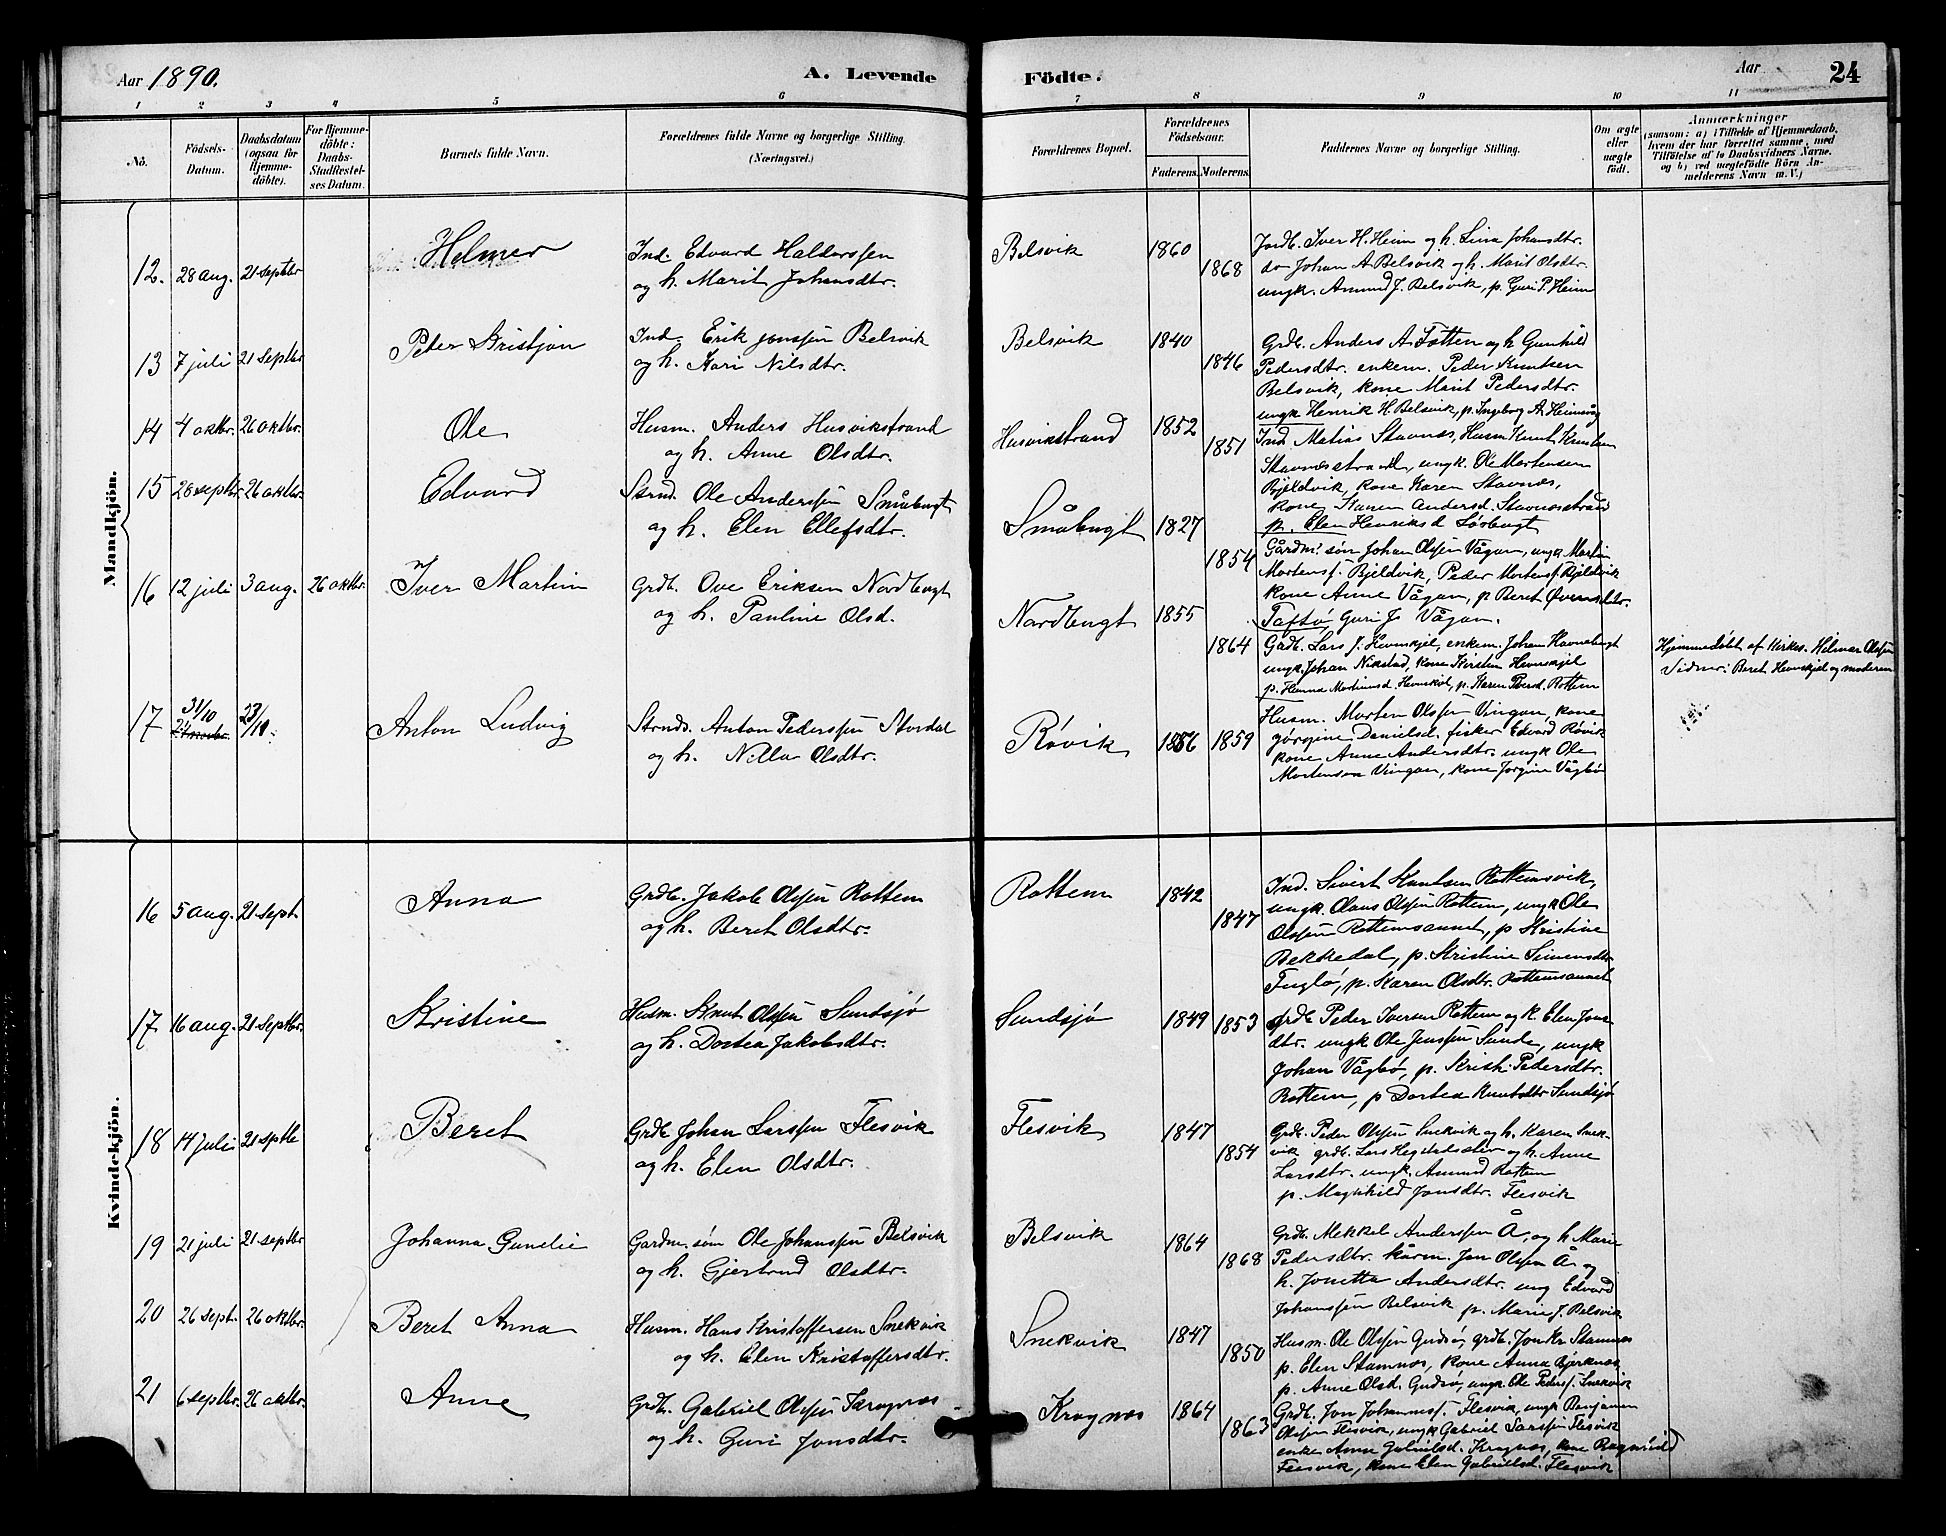 Aar 1890.
A. Levende Födte.
Aar
24
1 2 3 4 5 6 7 8 9 10 11
No.
Födsels-Datum.
Daabsdatum (ogsaa for Hjemme-döbte).
For Hjemme-döbte: Daabs-Stadfæstel-ses Datum.
Barnets fulde Navn.
Forældrenes fulde Navne og borgerlige Stilling.
(Næringsvei.)
Forældrenes Bopæl.
Forældrenes Födselsaar.
Faderens. Moderens.
Faddernes Navne og borgerlige Stilling.
Om ægte eller uægte födt.
Anmærkninger
(saasom: a) i Tilfælde af Hjemmedaab,
hvem der har forrettet samme, med
Tilföielse af to Daabsvidners Navne.
og b) ved uægtefödte Börn An-
melderens Navn m. V.)
Mandkjön.
12. 28 aug. 21 septbr Helmer
Ind. Edvard Haldorssen
og h. Marit Johansdtr.
Belsvik 1860 1868
Jordb. Iver H. Heim og h. Lina Johansdtr.
do Johan A. Belsvik og h. Marit Olsdtr.
ungk. Amund J. Belsvik, p. Guri P. Heim
13 7 juli 21 septbr Peter Kristjan
Ind. Erik Jonssen Belsvik
og h. Kari Nilsdtr.
Belsvik 1840 1846
Grdb. Anders A. Totten og h Gunhild
Pedersdtr. enkem. Peder Knutsen
Belsvik, kone Marit Pedersdtr.
ungk Henrik H. Belsvik, p. Ingeborg A. Heimsvåg
14 4 oktbr. 26 oktbr. Ole
Husm. Anders Husvikstrand
og h. Anne Olsdtr.
Husvikstrand 1852 1851
Ind. Matias Stavnæs, Husm Knut Knutsen
Stavnæsstrand, ungk. Ole Mortensen
Bjeldvik, kone Karen Stavnæs,
kone Karen Andersd. Stavnæsstrand
p. Elen Henriksd Sørbugt
15 26 septbr. 26 oktbr. Edvard
Strnd. Ole Anderssen Småbugt
og h. Elen Ellefsdtr.
Småbugt 1827 1854
Gårdm. søn Johan Olssen Vågan, ungk Martin
Mortenss. Bjeldvik, Peder Mortenss. Bjeldvik
kone Anne Vågan, p Beret Øvensdtr.
Taftø, Guri J. Vågan.
16 12 juli 3 aug. 26 oktbr. Iver Martin
Grdb. Ove Eriksen Nordbugt
og h. Pauline Olsd.
Nordbugt 1855 1864
Grdb. Lars J. Hevnskjel, enkem. Johan Havnebugt
ungk. Johan Nikstad, kone Kirsten Hevnskjel
p. Hanna Martinusd. Hevnskel, p. Karen Iversd. Rottem
Hjemmedøbt af Kirkes. Hilmar Olssen
Vidner: Beret Hevnskjel og moderen
17 31/10 23/10. Anton Ludvig
Strnds. Anton Pederssen Stordal
og h. Nilla Olsdtr.
Røvik 1856 1859
Husm. Morten Olssen Vingan, kone
Jørgine Danielsd. fisker Edvard Røvik
kone Anne Andersdtr. ungk Ole
Mortensen Vingan, kone Jørgine Vågbø
Kvindekjön.
16 5 aug. 21 sept Anna
Grdb. Jakob Olssen Rottem
og h. Beret Olsdtr.
Rottem 1842 1847
Ind. Sivert Knutsen Rottemsvik,
ungk. Olaus Olssen Rottem, ungk Ole
Olssen Rottemsannet, p Kristine
Bekkedal, p. Kristine Simensdtr
Fuglø, p. Karen Olsdtr. Rottemsannet
17 16 aug. 21 septbr. Kristine
Husm. Knut Olssen Sundsjø
og h. Dortea Jakobsdtr.
Sundsjø 1849 1853
Grdb Peder Iversen Rottem og h. Elen Jons-
dtr. ungk Ole Jenssen Sunde, ungk
Johan Vågbø, p. Krist. Pedersdtr.
Rottem, p Dortea Knutsdtr Sundsjø
18 14 juli 21 septbr Beret
Grdb Johan Larssen Flesvik
og h. Elen Olsdtr.
Flesvik 1847 1854
Grdb. Peder Olssen Snekvik og h. Karen Snek-
vik grdb. Lars Hegstadsæter og h. Anne
Larsdtr. ungk. Amund Rottem
p. Magnhild Jonsdtr. Flesvik
19 21 juli 21 septbr Johanna Gunelie
Gardm. søn Ole Johanssen Belsvik
og h. Gjertrud Olsdtr.
Belsvik 1864 1868
Grdb. Mekkel Anderssen Å, og h Marie
Pedersdtr. kårm. Jon Olssen Å og
h. Jonetta Andersdtr. ung Edvard
Johanssen Belsvik p. Marie J. Belsvik
20 26 sept. 26 oktbr. Beret Anna
Husm. Hans Kristoffersen Snekvik
og h. Elen Kristoffersdtr.
Snekvik 1847 1850
Husm. Ole Olssen Gudsø, grdb. Jon Kr Stamnes
p. Elen Stamnæs, kone Anna Bjerknæs,
p. Anne Olsd. Gudsø, ungk. Ole Peders. Snekvik
21 6 septbr. 26 oktbr. Anne
Grdb. Gabriel Olssen Kragnæs
og h. Guri Jonsdtr.
Kragnæs 1864 1863
Grdb. Jon Johanness. Flesvik, ungk Benjamin
Olssen Flesvik, ungk Gabriel Larssen Flesvik
enke Anne Gabrielsd. Kragnæs, kone Ragnhild
Flesvik, kone Elen Gabrielsd. Flesvik